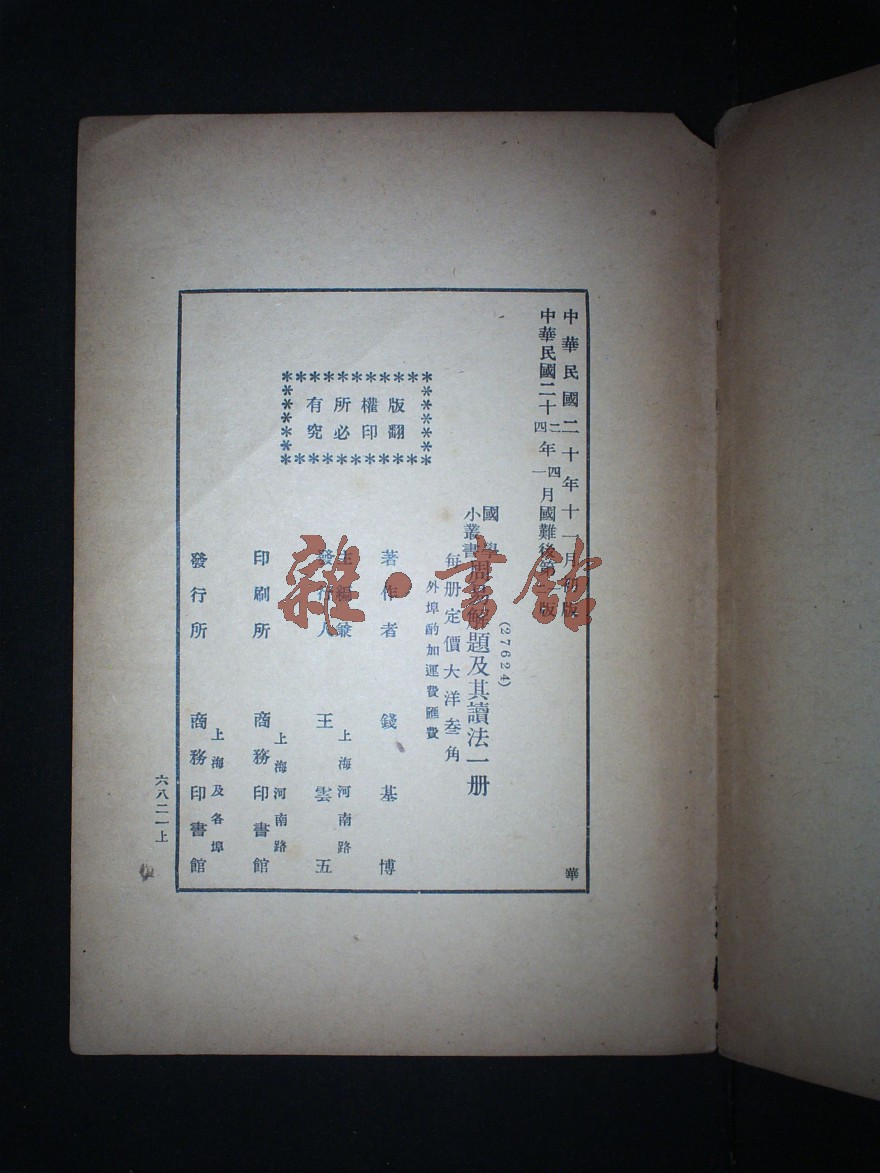 中華民國二十年十一月初版
中華民國二十四二年一四月國難後第版
(27624)
國學小叢書周易解題及其讀法一册
每册定價大洋叁角
外埠酌加運費匯費
版權所有
翻印必究
著作者 錢基博
主編兼發行人 王雲五
上海河南路
印刷所 商務印書館
上海河南路
發行所 商務印書館
上海及各埠
華
六八二一上
雜·書館